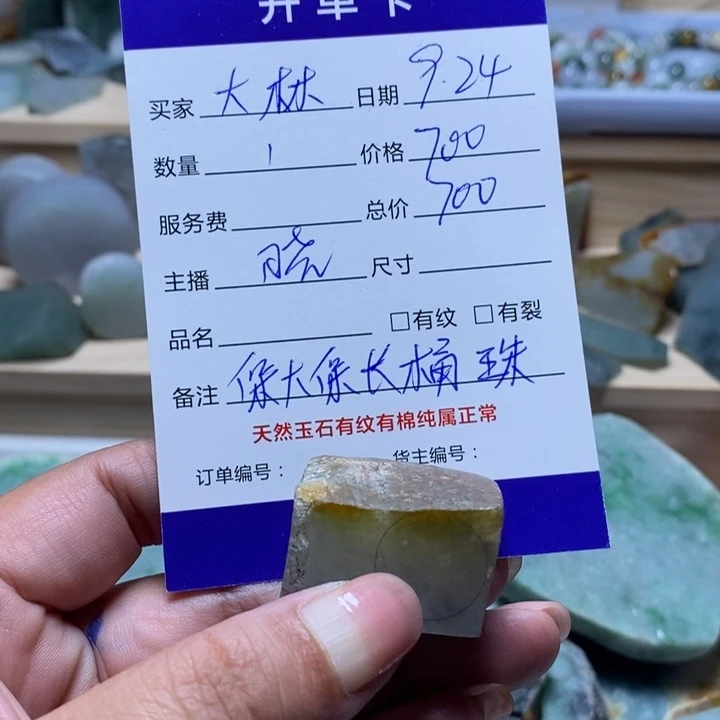 开单卡
买家 大林 日期 9.24
数量 1 价格 700
服务费 总价 700
主播 晓 尺寸
品名 □有纹 □有裂
备注 保大保长桶珠
天然玉石有纹有棉纯属正常
订单编号： 货主编号：